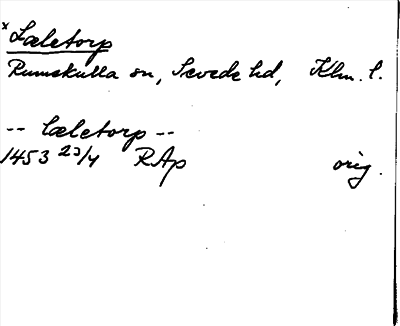 x Læletorp
Rumskulla sn, Sevede hd, Klm. l.
-- læletorp --
1453 23/4 RAp orig.